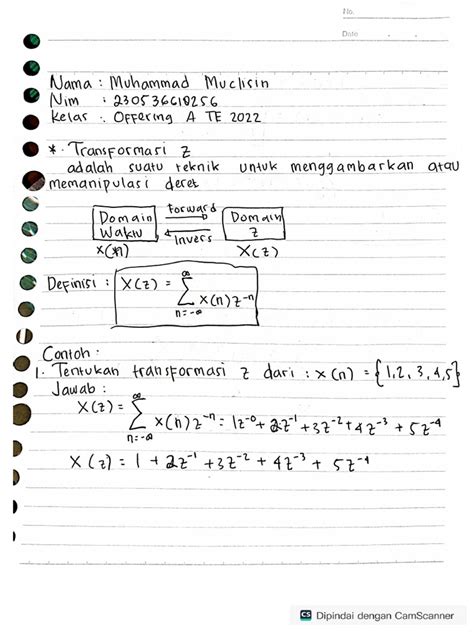 No.
Date
Nama : Muhammad Muclisin
Nim : 230536610256
Kelas : Offering A TE 2022
* . Transformasi Z
adalah suatu teknik untuk menggambarkan atau
memanipulasi deret
Domain Waktu
Forward
Invers
Domain z
x(*n)
X(z)
Definisi : X(z) = ∑ x(n) z⁻ⁿ
∞
n=-∞
Contoh :
1. Tentukan transformasi z dari : x(n) = {1,2,3,4,5}
Jawab :
∞
X(z) = ∑ x(n) z⁻ⁿ = 1z⁻⁰ + 2z⁻¹ + 3z⁻² + 4z⁻³ + 5z⁻⁴
n=-∞
X(z) = 1 + 2z⁻¹ + 3z⁻² + 4z⁻³ + 5z⁻⁴
CS Dipindai dengan CamScanner